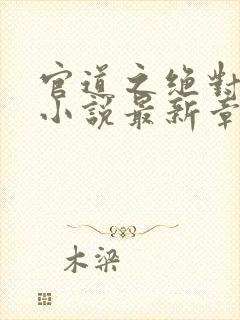 官道之绝對
小説最新章
木梁